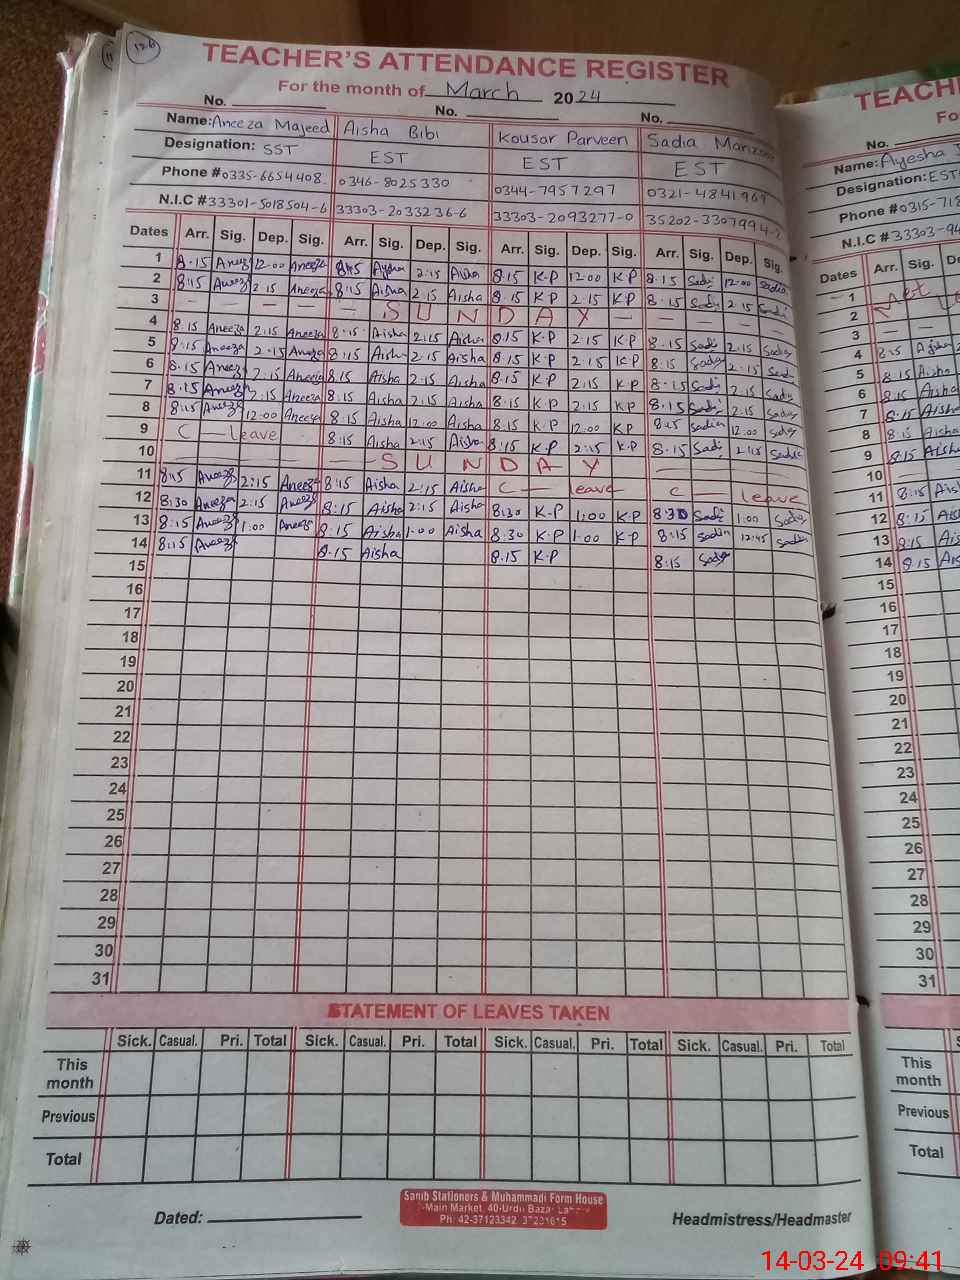 126
TEACHER'S ATTENDANCE REGISTER
For the month of March 2024
No. No. No.
Name: Aneeza Majeed Aisha Bibi Kousar Parveen Sadia
Designation: SST EST EST EST
Phone # 0335-6654408 0346-8025330 0344-7957297 0321-4841969
N.I.C # 33301-5018504-6 33303-2033236-6 33303-2093277-0 35202-3307994-2
Dates Arr. Sig. Dep. Sig. Arr. Sig. Dep. Sig. Arr. Sig. Dep. Sig. Arr. Sig. Dep. Sig.
1 8.15 Aneeza 12.00 Aneeza 8:15 Aisha 2:15 Aisha 8.15 K.P 12.00 K.P 8.15 Sadi 12.00 Sadia
2 8:15 Aneeza 2.15 Aneeza 8:15 Aisha 2.15 Aisha 8.15 K.P 2.15 K.P 8.15 Sadi 2.15 Sadi
3 — — — — — S U N D A Y —
4 8:15 Aneeza 2:15 Aneeza 8:15 Aisha 2:15 Aisha 8.15 K.P 2.15 K.P 8.15 Sadi 2.15 Sadia
5 8:15 Aneeza 2.15 Aneeza 8:15 Aisha 2.15 Aisha 8.15 K.P 2.15 K.P 8.15 Sadia 2.15 Sadi
6 8.15 Aneeza 2.15 Aneeza 8:15 Aisha 2:15 Aisha 8:15 K.P 2:15 K.P 8.15 Sadi 2.15 Sadia
7 8.15 Aneeza 2.15 Aneeza 8:15 Aisha 2:15 Aisha 8:15 K.P 2:15 K.P 8.15 Sadi 2:15 Sadia
8 8:15 Aneeza 12.00 Aneeza 8:15 Aisha 12:00 Aisha 8:15 K.P 12.00 K.P 8:15 Sadia 12:00 Sadia
9 C — leave 8:15 Aisha 2:15 Aisha 8:15 K.P 2:15 K.P 8.15 Sadi 2:15 Sadia
10 — — — — — S U N D A Y
11 8:15 Aneeza 2:15 Aneeza 8:15 Aisha 2:15 Aisha C — leave C — leave
12 8:30 Aneeza 2:15 Aneeza 8:15 Aisha 2:15 Aisha 8:30 K.P 1:00 K.P 8:30 Sadi 1:00 Sadia
13 8:15 Aneeza 1:00 Aneeza 8:15 Aisha 1:00 Aisha 8:30 K.P 1:00 K.P 8:15 Sadia 12:45 Sadia
14 8:15 Aneeza 8.15 Aisha 8.15 K.P 8:15 Sadia
15
16
17
18
19
20
21
22
23
24
25
26
27
28
29
30
31
STATEMENT OF LEAVES TAKEN
Sick. Casual. Pri. Total Sick. Casual. Pri. Total Sick. Casual. Pri. Total Sick. Casual. Pri. Total
This month
Previous
Total
Sanib Stationers & Muhammadi Form House
Main Market, 40-Urdu Bazar Lahore
Ph: 42-37123342
Dated: Headmistress/Headmaster
No.
Name: Ayesha
Designation: EST
Phone # 0315-718
N.I.C # 33303-94
Dates Arr. Sig.
1
2
3 — —
4 8:15
5 8:15 Aisha
6 8:15 Aisha
7 8:15 Aisha
8 8:15 Aisha
9 8.15
10 —
11 8:15
12 8:15
13 8:15
14 8.15
15
16
17
18
19
20
21
22
23
24
25
26
27
28
29
30
31
This month
Previous
Total
14-03-24 09:41